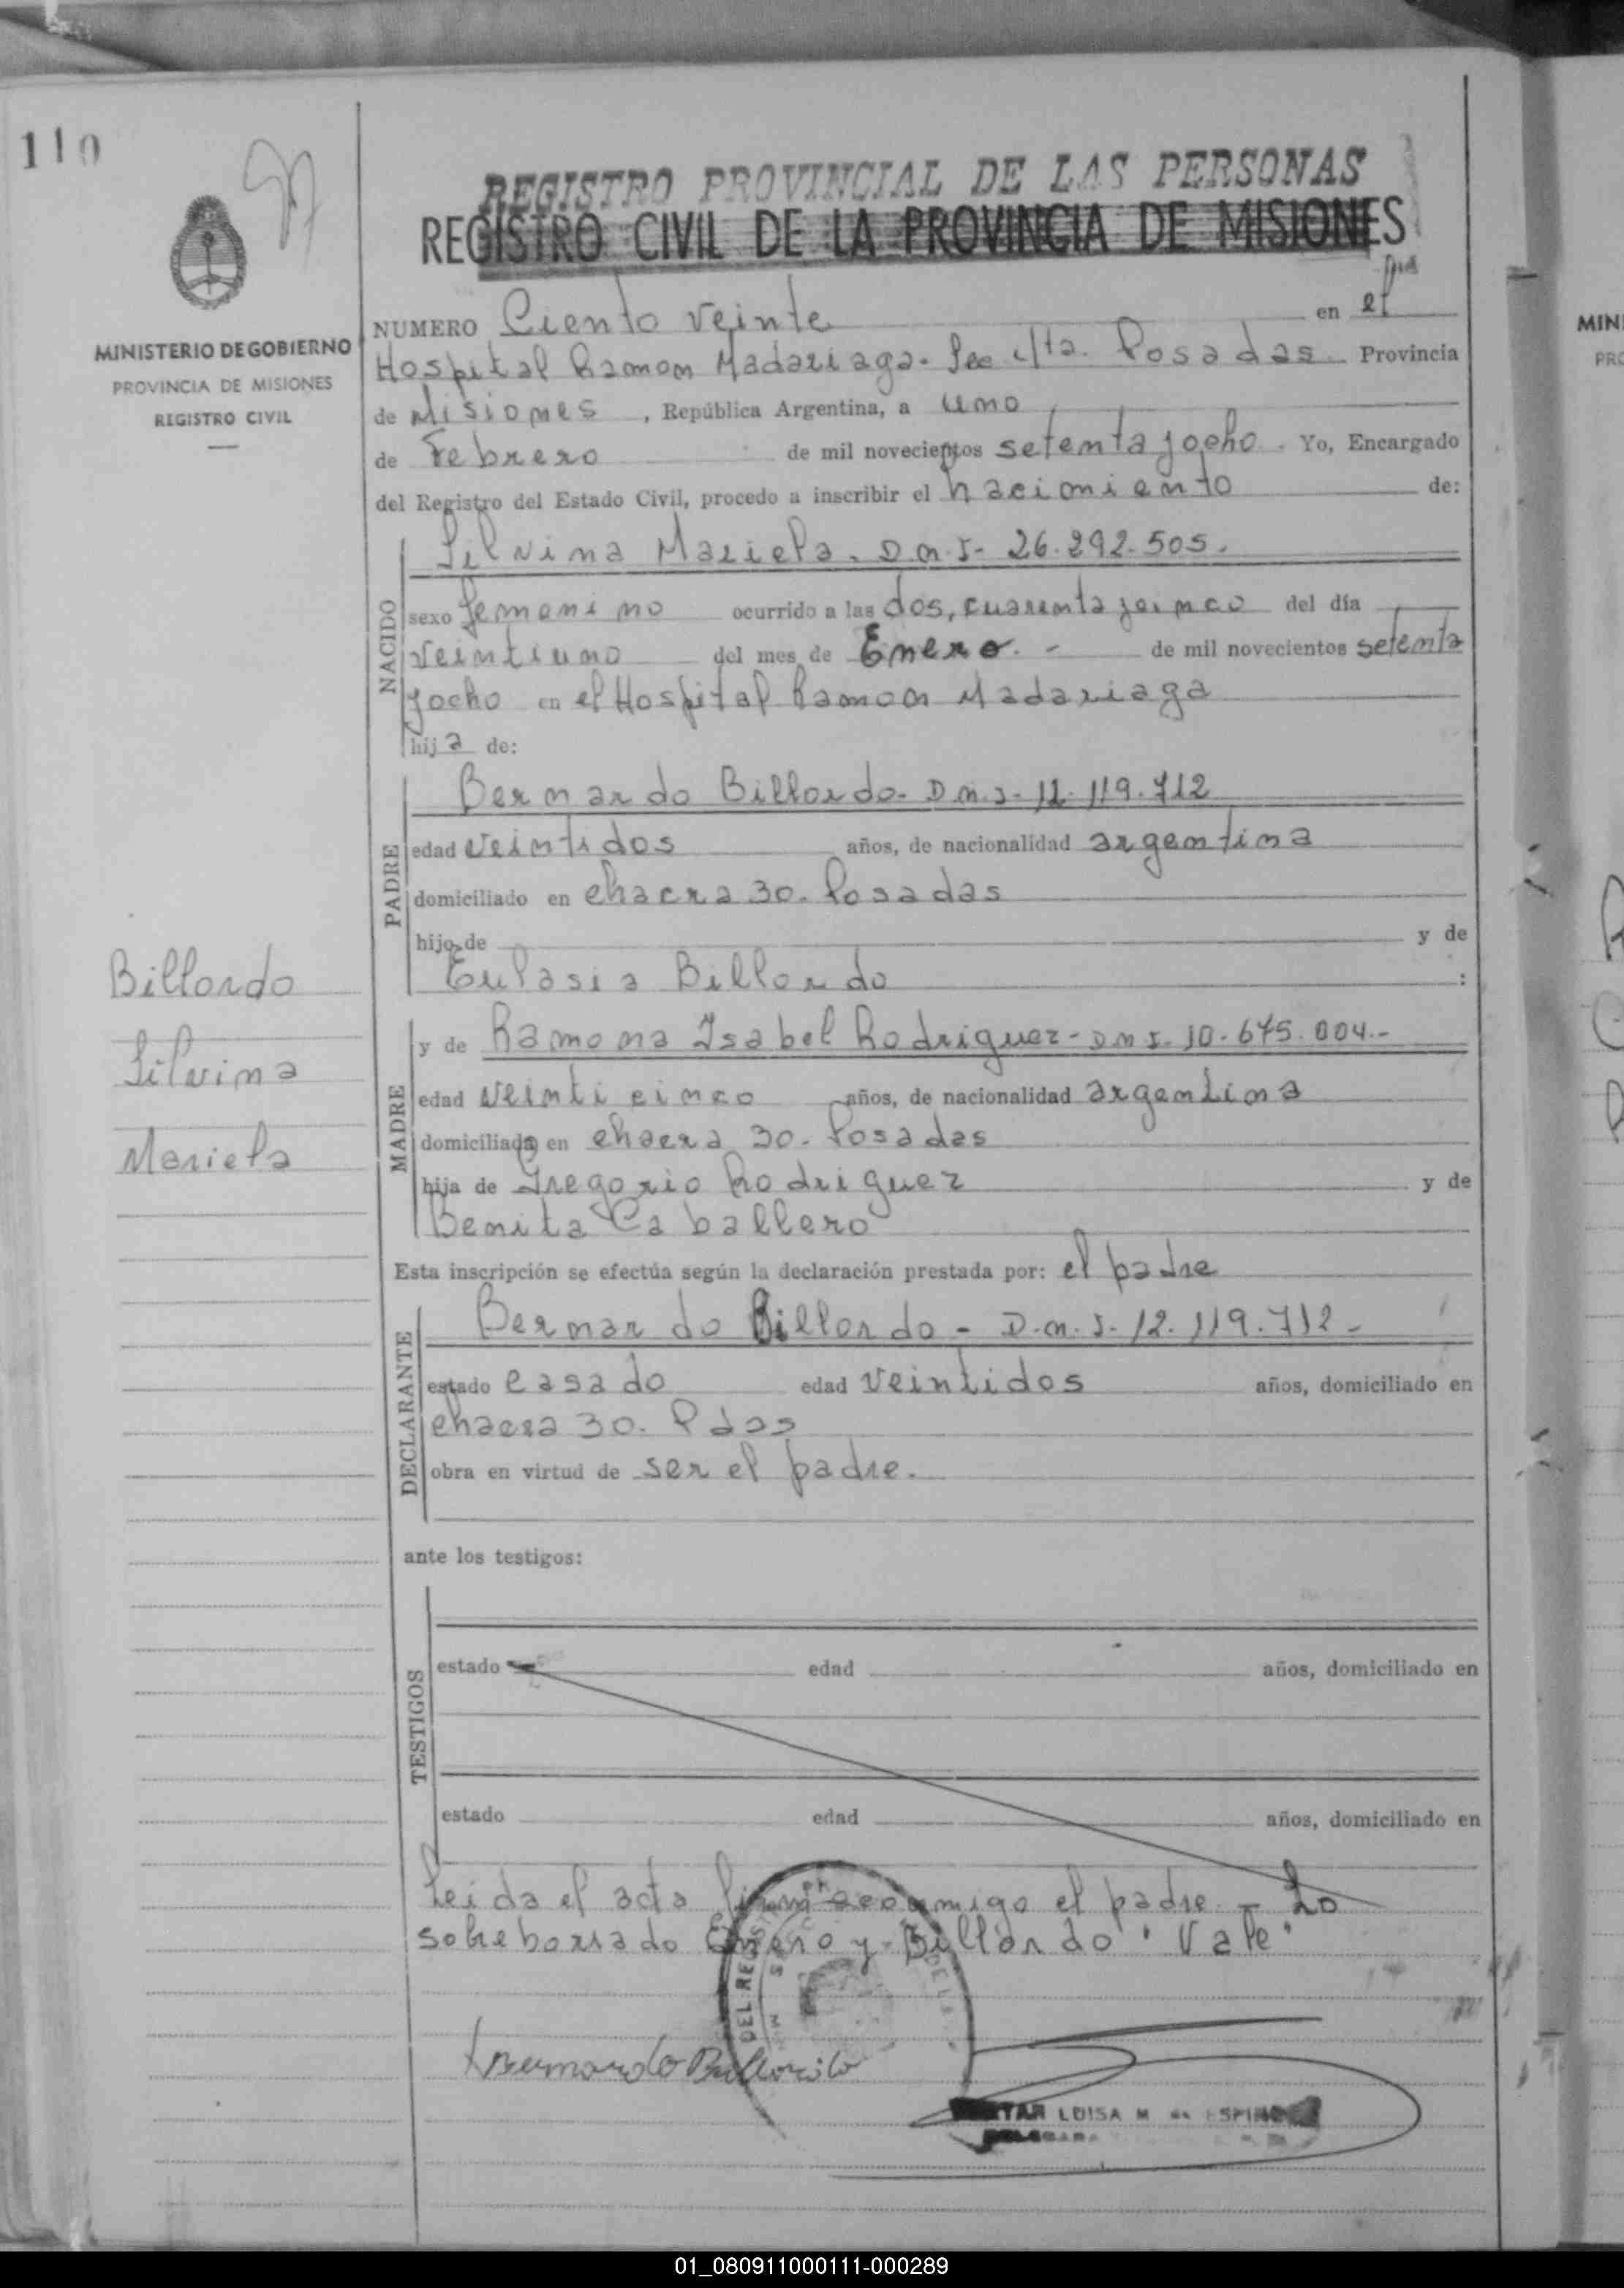 110
REGISTRO PROVINCIAL DE LAS PERSONAS
REGISTRO CIVIL DE LA PROVINCIA DE MISIONES
MINISTERIO DE GOBIERNO
PROVINCIA DE MISIONES
REGISTRO CIVIL
NUMERO Ciento veinte en el
Hospital Ramon Madariaga. Sec 4ta. Posadas. Provincia
de Misiones, República Argentina, a uno
de Febrero de mil novecientos setenta y ocho. Yo, Encargado
del Registro del Estado Civil, procedo a inscribir el nacimiento de:
NACIDO
Silvina Mariela. D.N.I- 26.292.505.
sexo femenino ocurrido a las dos, cuarenta y cinco del día
veintiuno del mes de Enero.- de mil novecientos setenta
y ocho en el Hospital Ramon Madariaga
hija de:
PADRE
Bernardo Billordo- D.N.I- 12.119.712
edad veintidos años, de nacionalidad argentina
domiciliado en chacra 30. Posadas
hijo de y de
Eulasia Billordo :
Billordo
Silvina
Mariela
MADRE
y de Ramona Isabel Rodriguez- D.N.I- 10.675.004.-
edad veinticinco años, de nacionalidad argentina
domiciliada en chacra 30. Posadas
hija de Gregorio Rodriguez y de
Benita Caballero
Esta inscripción se efectúa según la declaración prestada por: el padre
DECLARANTE
Bernardo Billordo - D.N.I- 12.119.712-
estado casado edad veintidos años, domiciliado en
chacra 30. Pdas
obra en virtud de ser el padre.
ante los testigos:
TESTIGOS
estado edad años, domiciliado en
estado edad años, domiciliado en
Leida el acta firma conmigo el padre.- Lo
sobreborrado Enero y Billordo "Vale"
DEL REGIST
Bernardo Billordo
LUISA M. de ESPIN
01_080911000111-000289